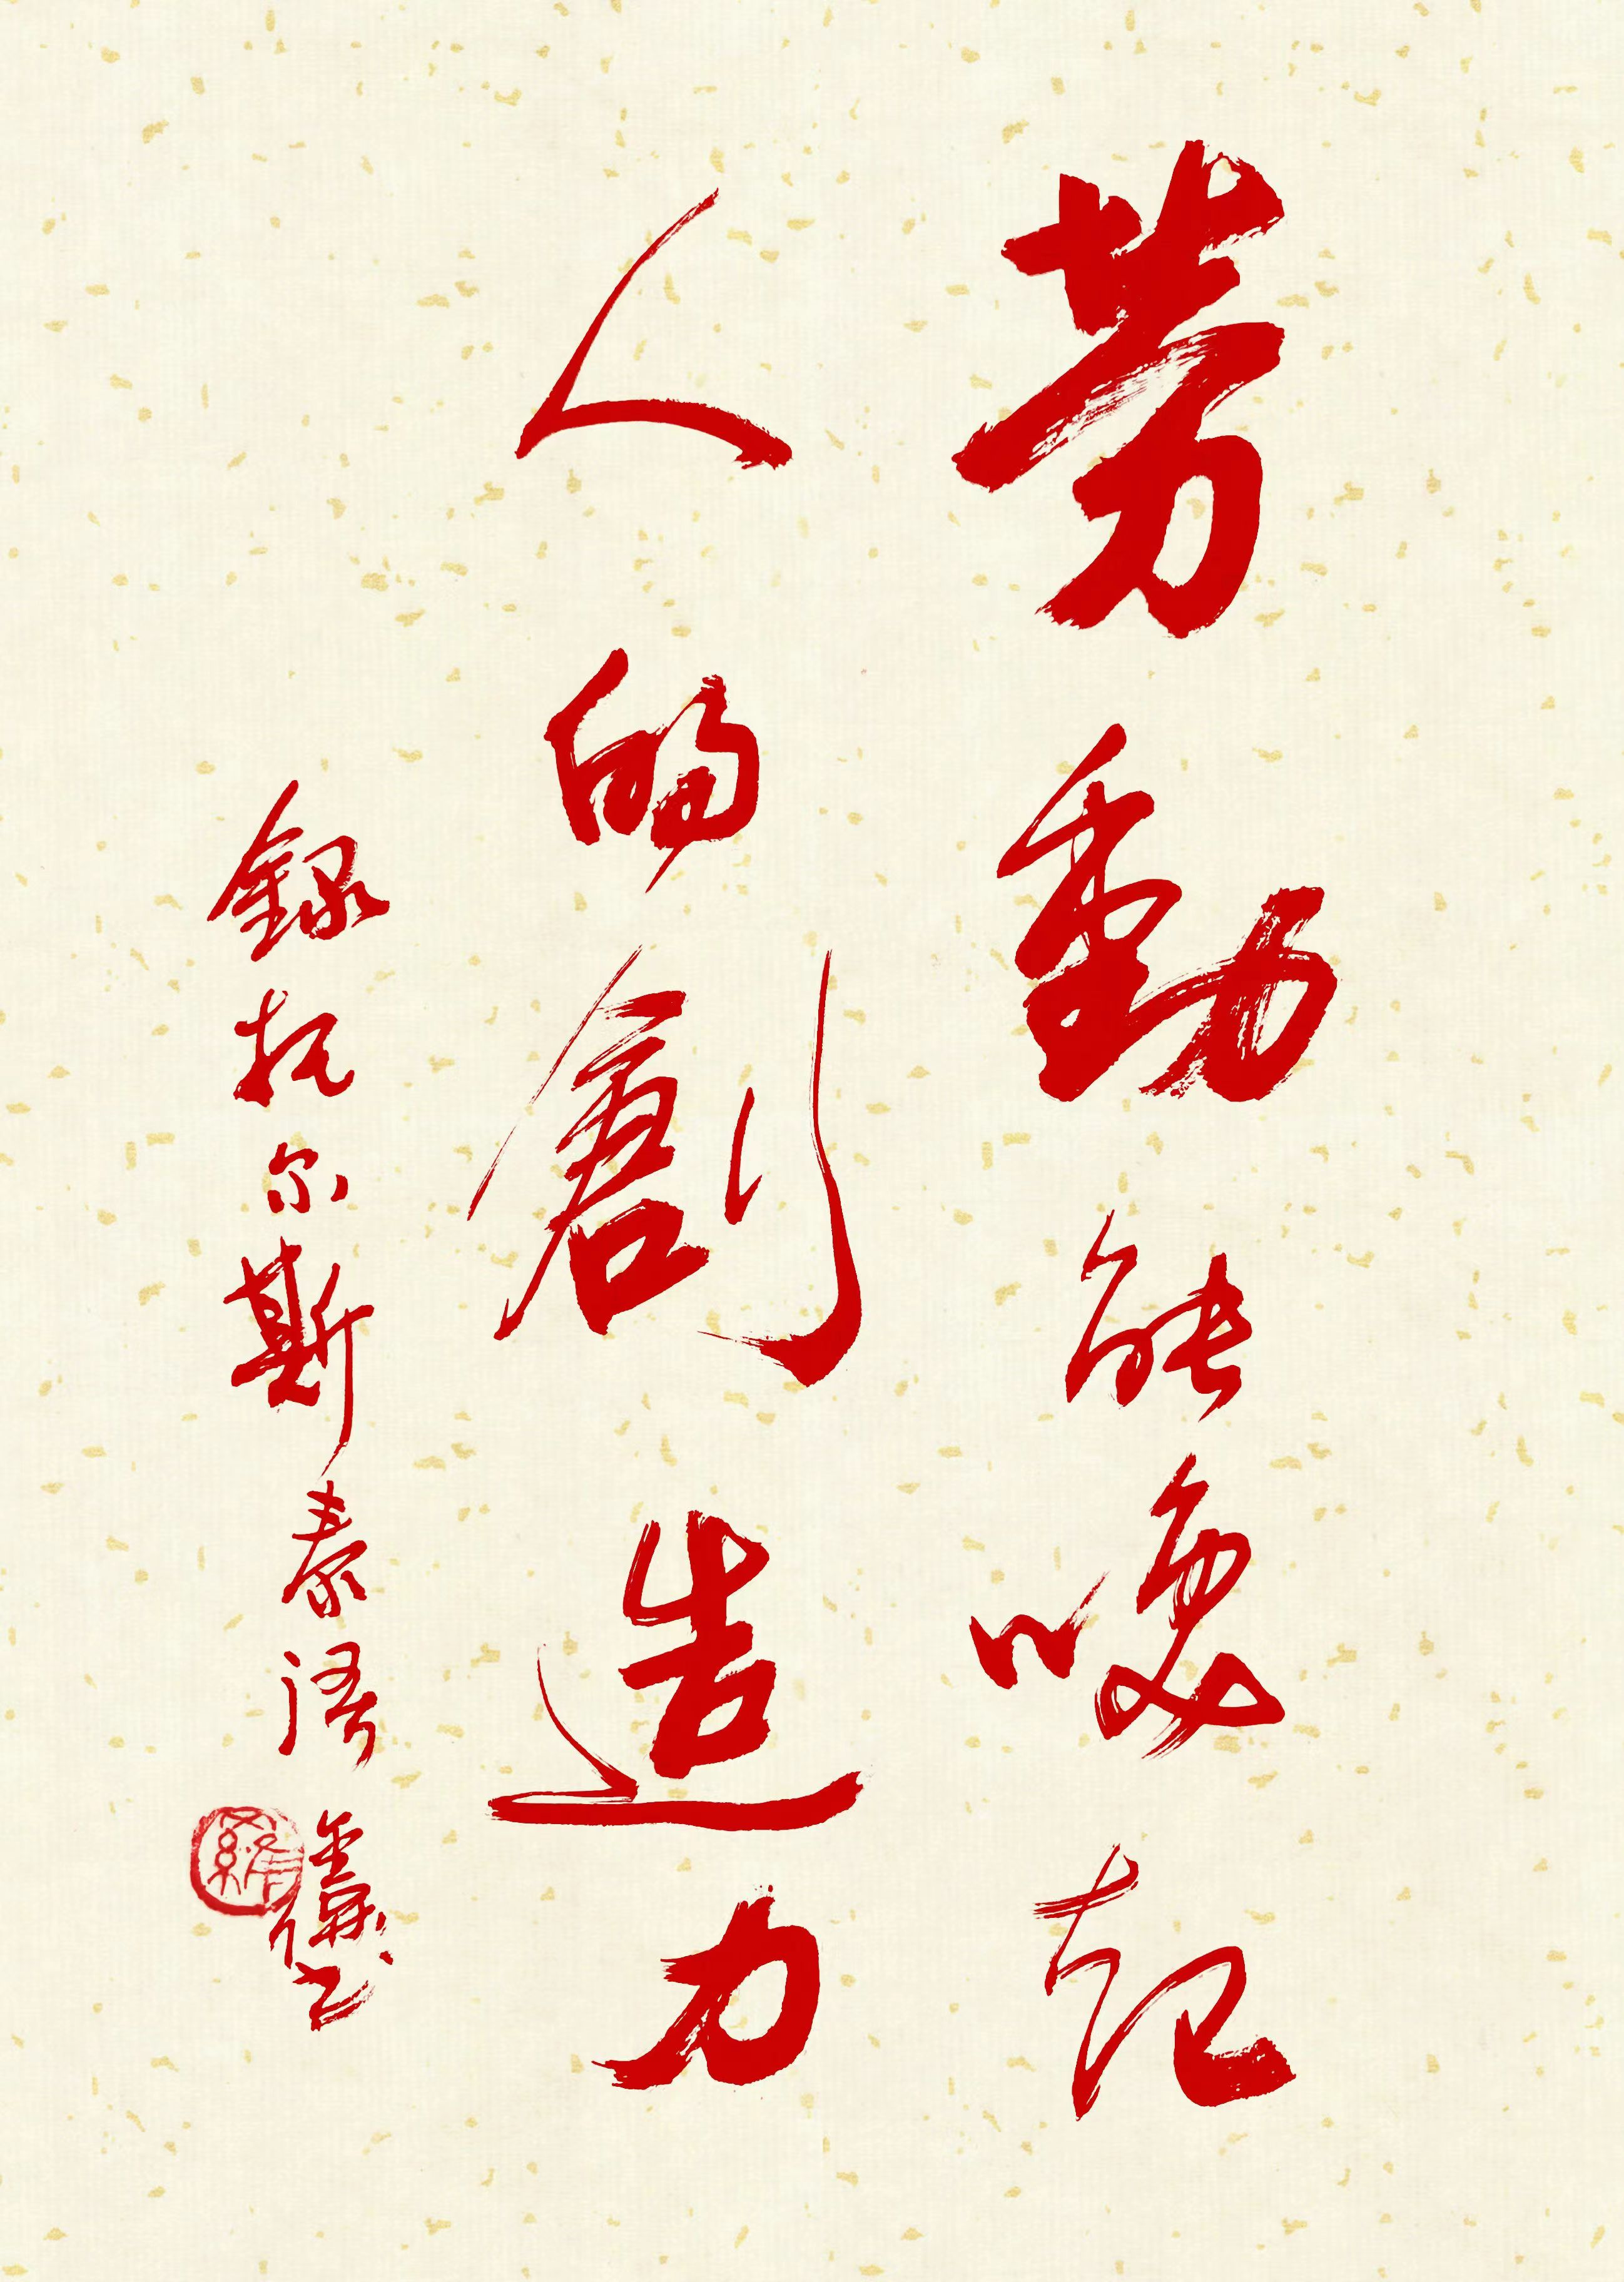 劳動能唤起
人的創造力
録托尔斯泰语